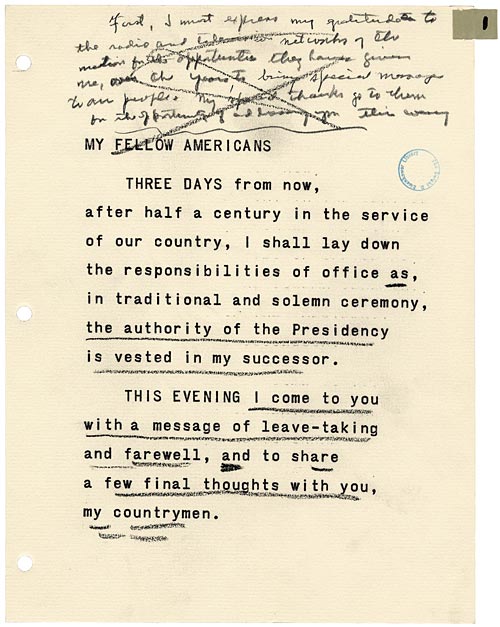 First, I must express my gratitude to
the radio and television networks of the
nation for the opportunities they have given
me, over the years, to bring special messages
to our people. My special thanks go to them
for the opportunity of addressing you this evening
1
MY FELLOW AMERICANS
THREE DAYS from now,
after half a century in the service
of our country, I shall lay down
the responsibilities of office as,
in traditional and solemn ceremony,
the authority of the Presidency
is vested in my successor.
THIS EVENING I come to you
with a message of leave-taking
and farewell, and to share
a few final thoughts with you,
my countrymen.